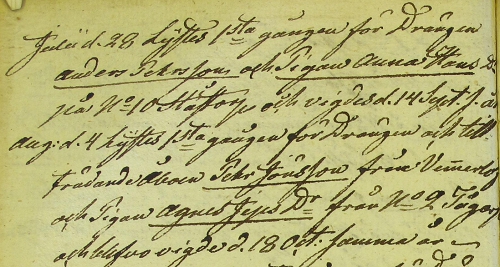 Julii d. 28 Lystes 1sta gången för Drängen
Anders Pehrsson och Pigan Anna Hans Dr
på No 10 och vigdes d. 14 Sept. s. å.
Aug: d. 4 Lystes 1sta gången för Drängen och till
trädande Åboen Pehr Jönsson från Vemmerlöf
och Pigan Agnes Jeps Dr från No 9
och blefvo vigde d. 18 Oct: samma år